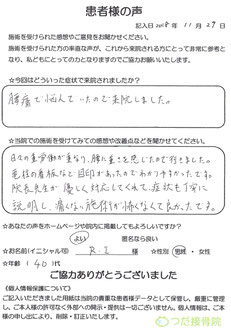 患者様の声
記入日 2018年 11月 29日
施術を受けられた感想やご意見をお聞かせください。
施術を受けられた方の率直な声が、これから来院される方にとって非常に参考と
なり、私どもにとっての力となりますのでご協力お願いいたします。
☆今回はどういった症状で来院されましたか?
腰痛で悩んでいたので来院しました。
☆当院での施術を受けてみての感想や改善点などを聞かせてください。
日々の重労働が重なり、腰に重さを感じたので行きました。
黄色の看板などで目印があったのでわかりやすかった。
院長先生が優しく対応してくれて、症状も丁寧に
説明し、痛くない施術が怖くなくて良かったです。
☆あなたの声をホームページや院内に掲載してもよろしいですか?
よい 匿名なら良い
☆お名前(イニシャル可) R・I 様 ☆性別 男性・女性
☆年齢 (40)代
ご協力ありがとうございました
《個人情報保護について》
ご記入いただきました用紙は当院の貴重な患者様データとして保管し、厳重に管理
し、ご本人様の許可なく外部への開示・提供は一切ございません。個人情報は、ご本
様の申し出により、削除・訂正いたします。
つだ接骨院